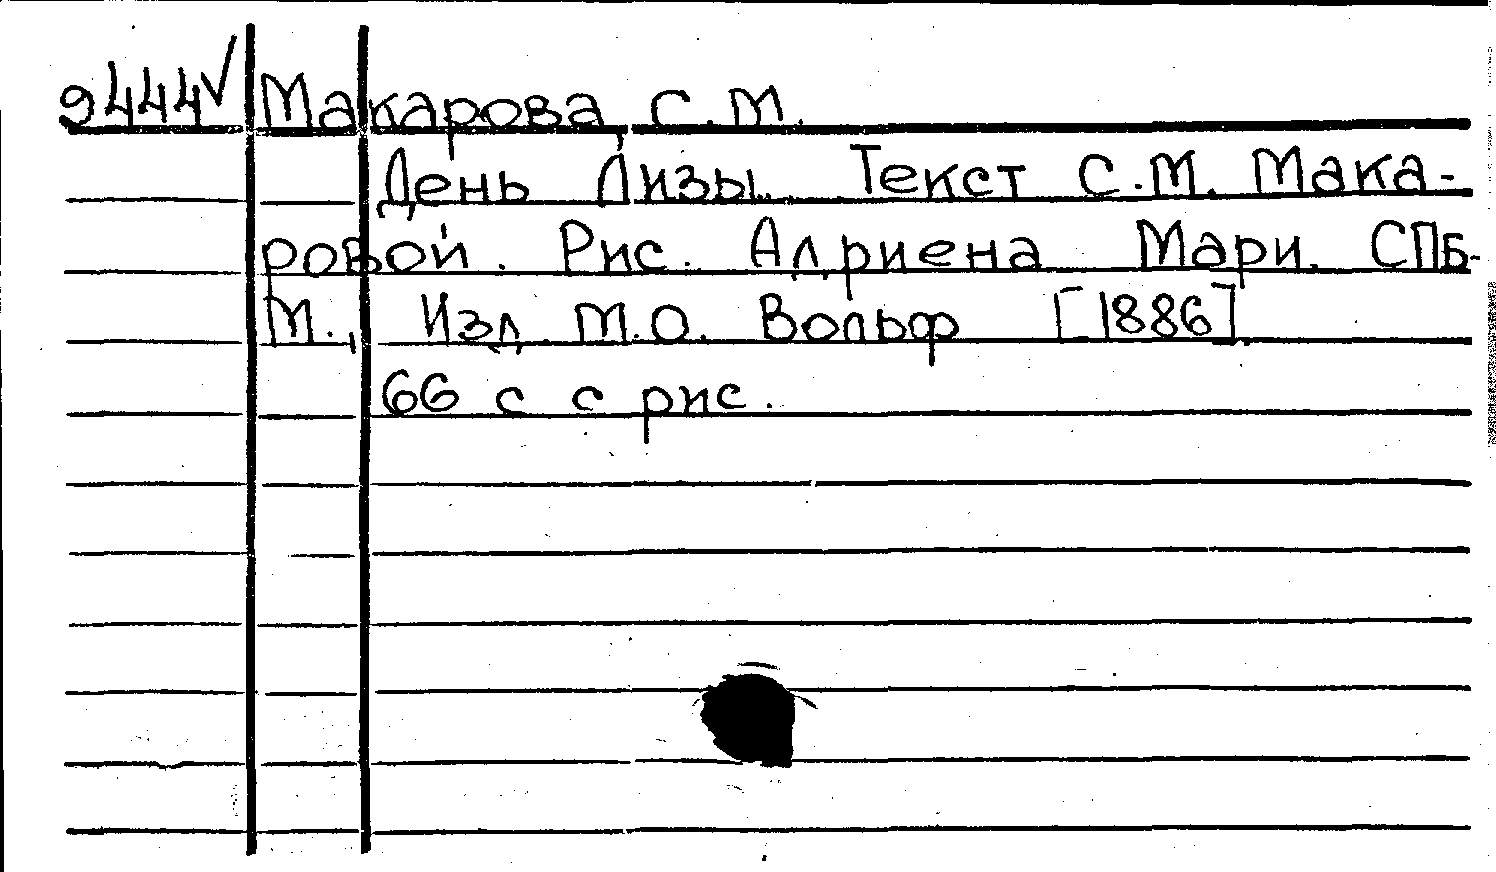 9444√ Макарова С.М.
День Лизы. Текст С.М. Мака-
ровой. Рис. Адриена Мари. СПб-
М., Изд. М.О. Вольф [1886].
66 с с рис.